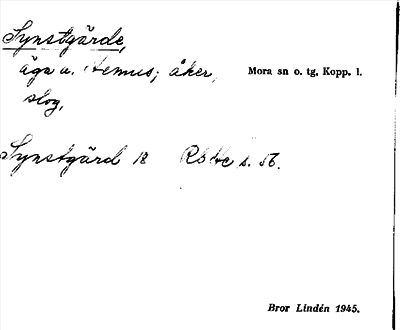 Synstgärde,
äga u. Hemus; åker, Mora sn o. tg, Kopp. l.
slog,
Synstgärd 18 RS s. 56.
Bror Lindén 1945.